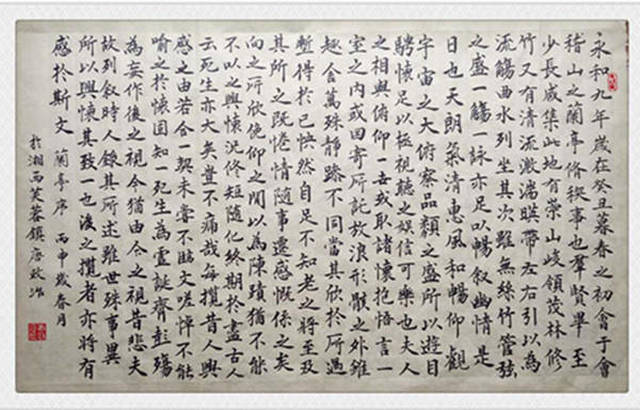 永和九年歲在癸丑暮春之初會于會
稽山之蘭亭脩稧事也羣賢畢至
少長咸集此地有崇山峻領茂林修
竹又有清流激湍暎帶左右引以為
流觴曲水列坐其次雖無絲竹管弦
之盛一觴一詠亦足以暢叙幽情是
日也天朗氣清惠風和暢仰觀
宇宙之大俯察品類之盛所以遊目
騁懷足以極視聽之娛信可樂也夫人
之相與俯仰一世或取諸懷抱悟言一
室之內或因寄所託放浪形骸之外雖
趣舍萬殊靜躁不同當其欣於所遇
暫得於己快然自足不知老之將至及
其所之既惓情隨事遷感慨係之矣
向之所欣俛仰之間以為陳蹟猶不能
不以之興懷況修短隨化終期於盡古人
云死生亦大矣豈不痛哉每攬昔人興
感之由若合一契未嘗不臨文嗟悼不能
喻之於懷固知一死生為虛誕齊彭殤
為妄作後之視今猶由今之視昔悲夫
故列叙時人錄其所述雖世殊事異
所以興懷其致一也後之攬者亦將有
感於斯文 蘭亭序 丙申歲春月
於湘西芙蓉鎮唐政